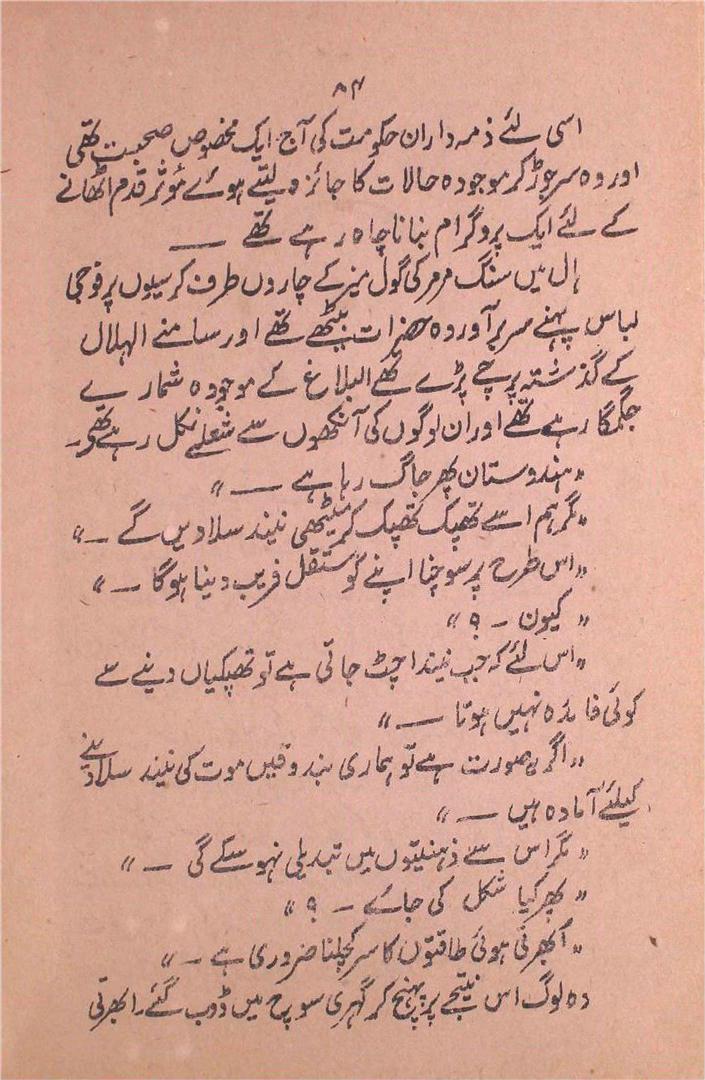 ۸۴
اسی لئے ذمہ داران حکومت کی آج ایک مخصوص صحبت تھی
اور وہ سر جوڑ کر موجودہ حالات کا جائزہ لیتے ہوئے مؤثر قدم اٹھانے
کے لئے ایک پروگرام بنانا چاہ رہے تھے ——
ہال میں سنگ مرمر کی گول میز کے چاروں طرف کرسیوں پر فوجی
لباس پہنے سربرآوردہ حضرات بیٹھے تھے اور سامنے الہلال
کے گذشتہ پرچے پڑے تھے البلاغ کے موجودہ شمارے
جگمگا رہے تھے اور ان لوگوں کی آنکھوں سے شعلے نکل رہے تھے۔
"ہندوستان پھر جاگ رہا ہے ——"
"مگر ہم اسے تھپک تھپک کر میٹھی نیند سلا دیں گے —"
"اس طرح پر سوچنا اپنے کو مستقل فریب دینا ہوگا —"
"کیوں — ؟"
"اس لئے کہ جب نیند اچٹ جاتی ہے تو تھپکیاں دینے سے
کوئی فائدہ نہیں ہوتا ——"
"اگر یہ صورت ہے تو ہماری بندوقیں موت کی نیند سلا دینے
کیلئے آمادہ ہیں ——"
"مگر اس سے ذہنیتوں میں تبدیلی نہو سکے گی —"
"پھر کیا شکل کی جائے — ؟"
"ابھرتی ہوئی طاقتوں کا سر کچلنا ضروری ہے —"
وہ لوگ اس نتیجے پر پہنچ کر گہری سوچ میں ڈوب گئے۔ ابھرتی